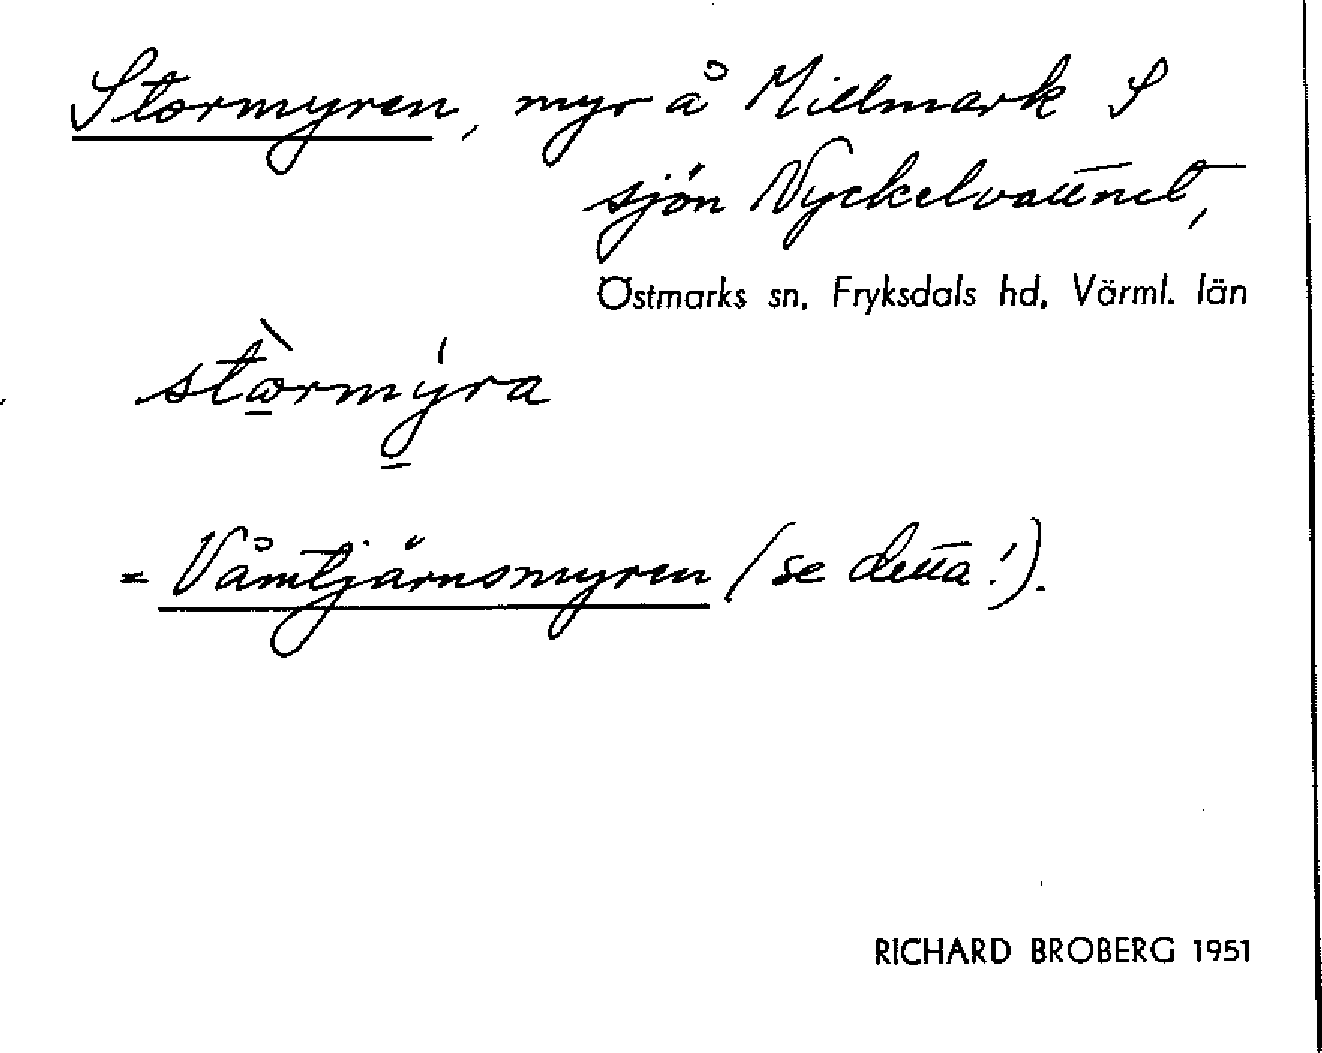 Stormyren, myr å Millmark S
sjön Nyckelvattnet,
Östmarks sn, Fryksdals hd, Värml. län
stòrmýra
= Våmtjärnsmyren (se detta!).
RICHARD BROBERG 1951